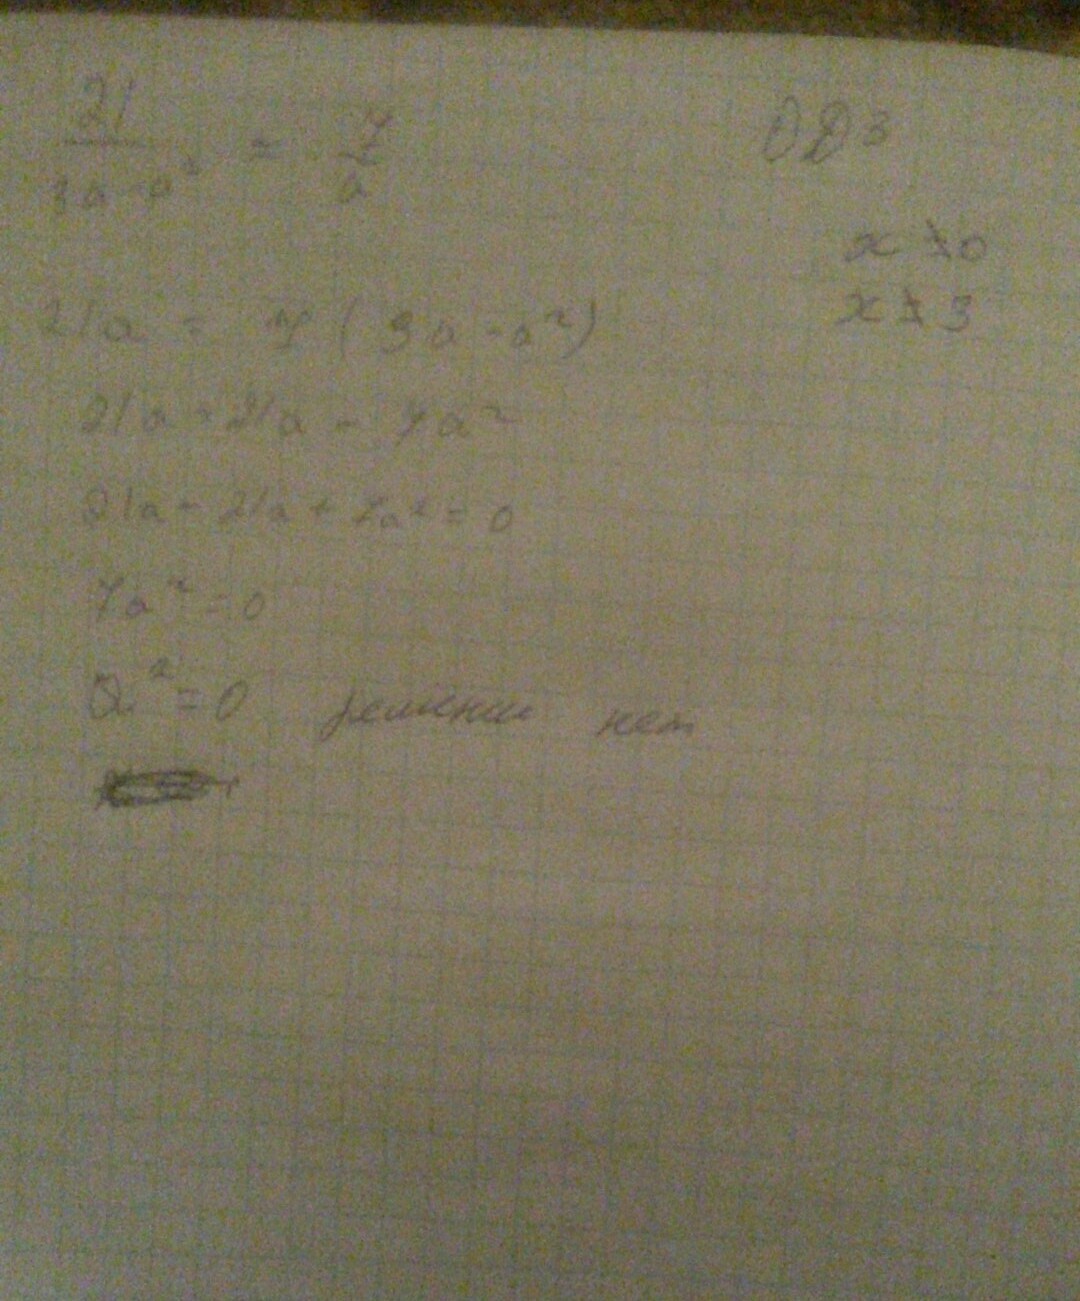 21/(3a-a²) = 7/a
ОДЗ
x ≠ 0
x ≠ 3
21a = 7(3a-a²)
21a = 21a - 7a²
21a - 21a + 7a² = 0
7a² = 0
a² = 0 решений нет